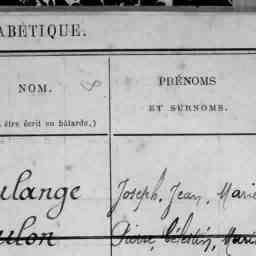 ABÉTIQUE.
NOM. 8
PRÉNOMS
ET SURNOMS.
être écrit en bâtarde.)
ulange Joseph, Jean, Marie
ulon Pierre, Célestin, Marie